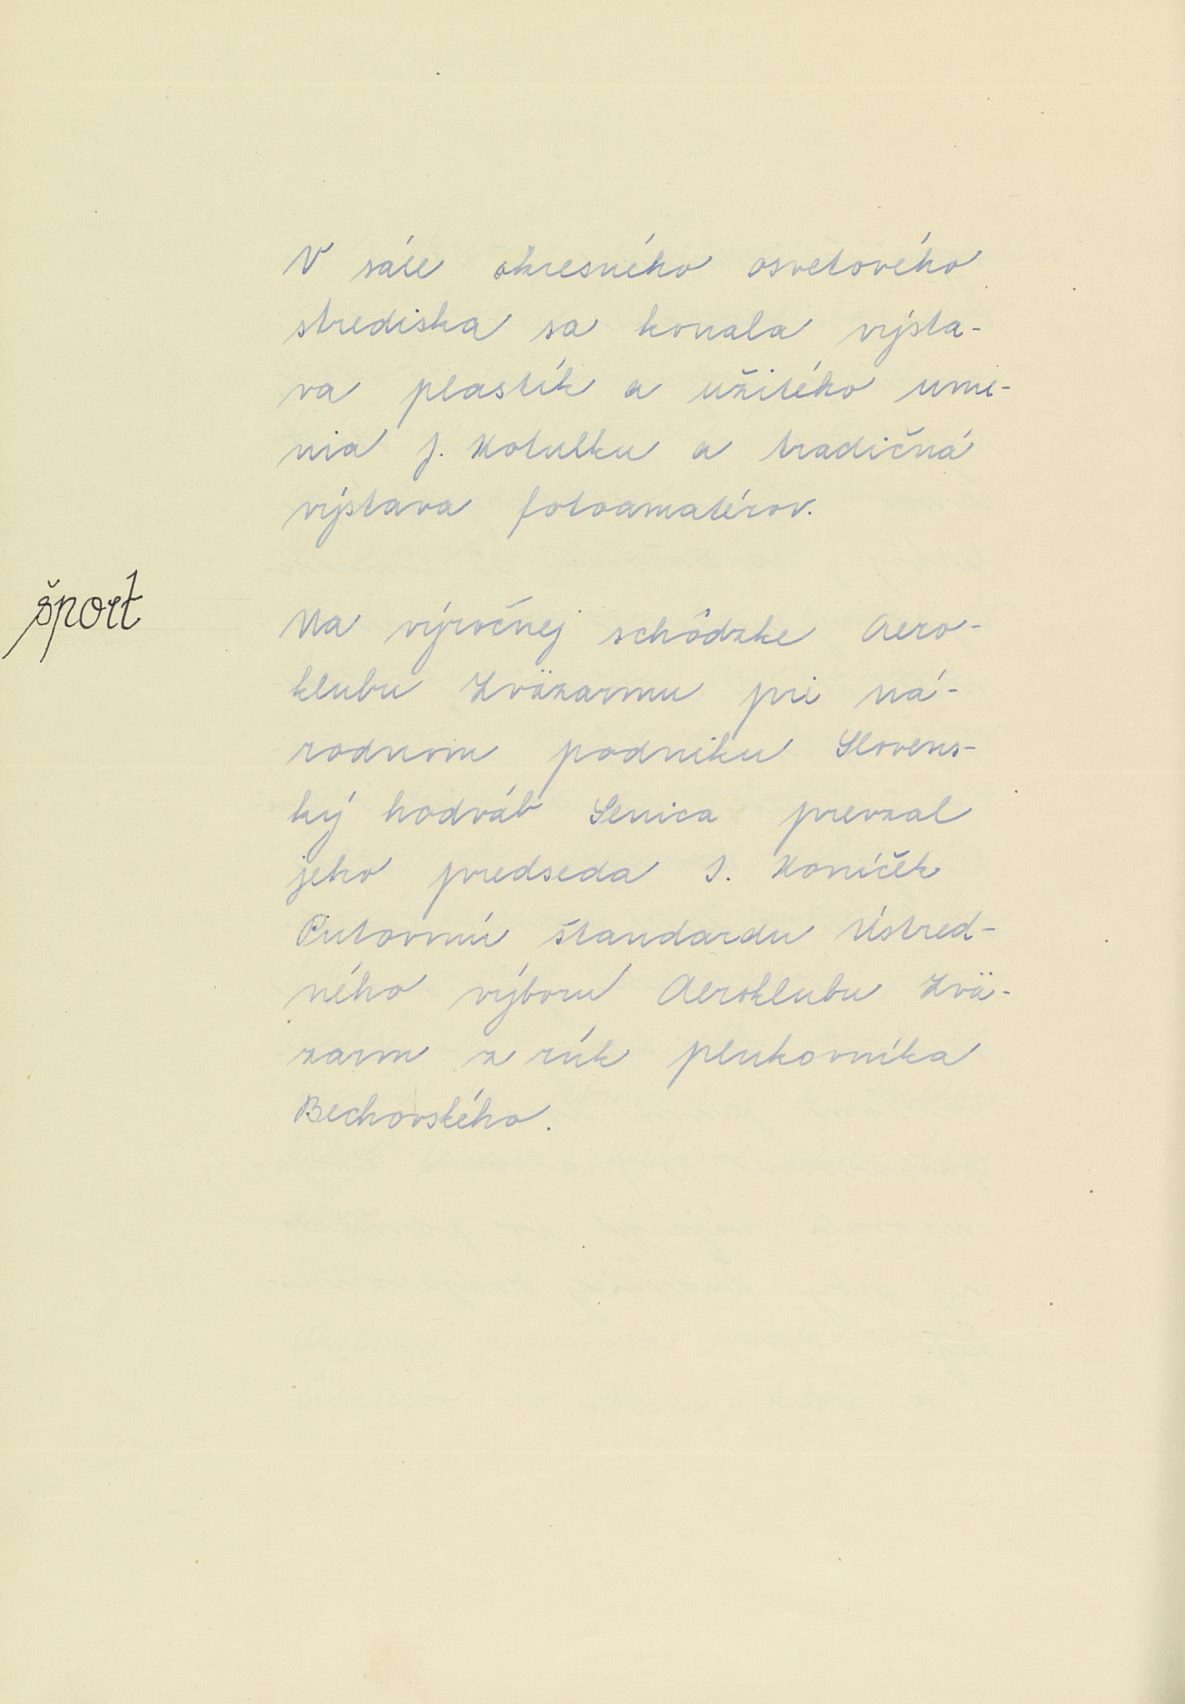 V sále okresného osvetového
strediska sa konala výsta-
va plastík a užitého ume-
nia J. Kotulku a tradičná
výstava fotoamatérov.
šport
Na výročnej schôdzke Aero-
klubu Zväzarmu pri ná-
rodnom podniku Slovens-
ký hodváb Senica prevzal
jeho predseda J. Koníček
Putovnú štandardu Ústred-
ného výboru Aeroklubu Zvä-
zarm z rúk plukovníka
Bechovského.